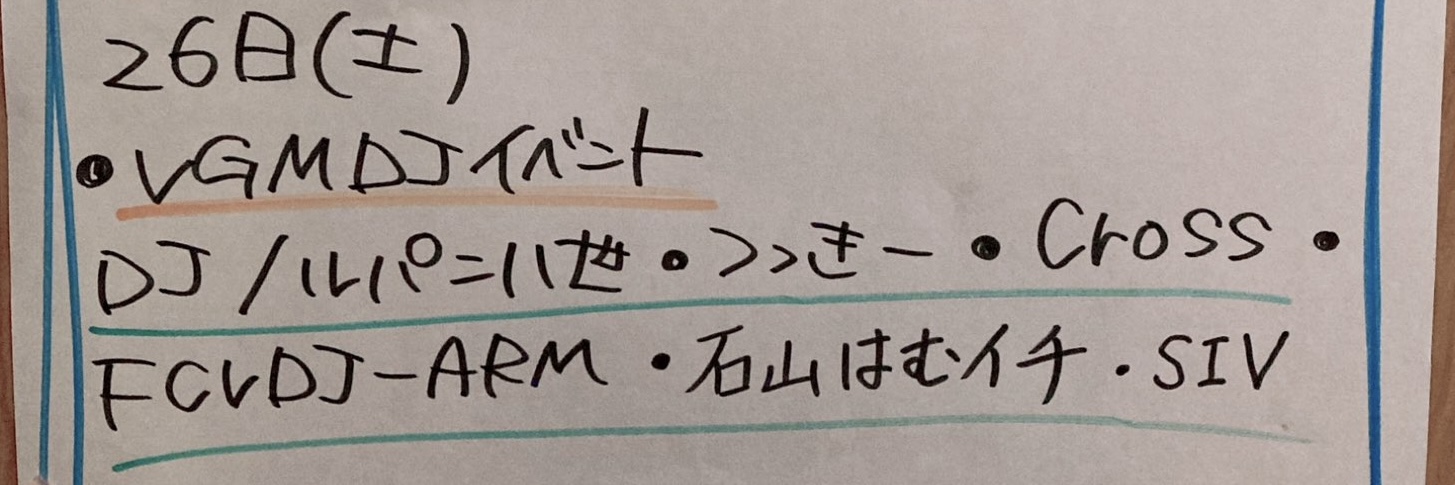 26日(土)
•VGMDJイベント
DJ/ルパン八世•つっきー•Cross•
FCVDJ-ARM・石山はむイチ・SIV